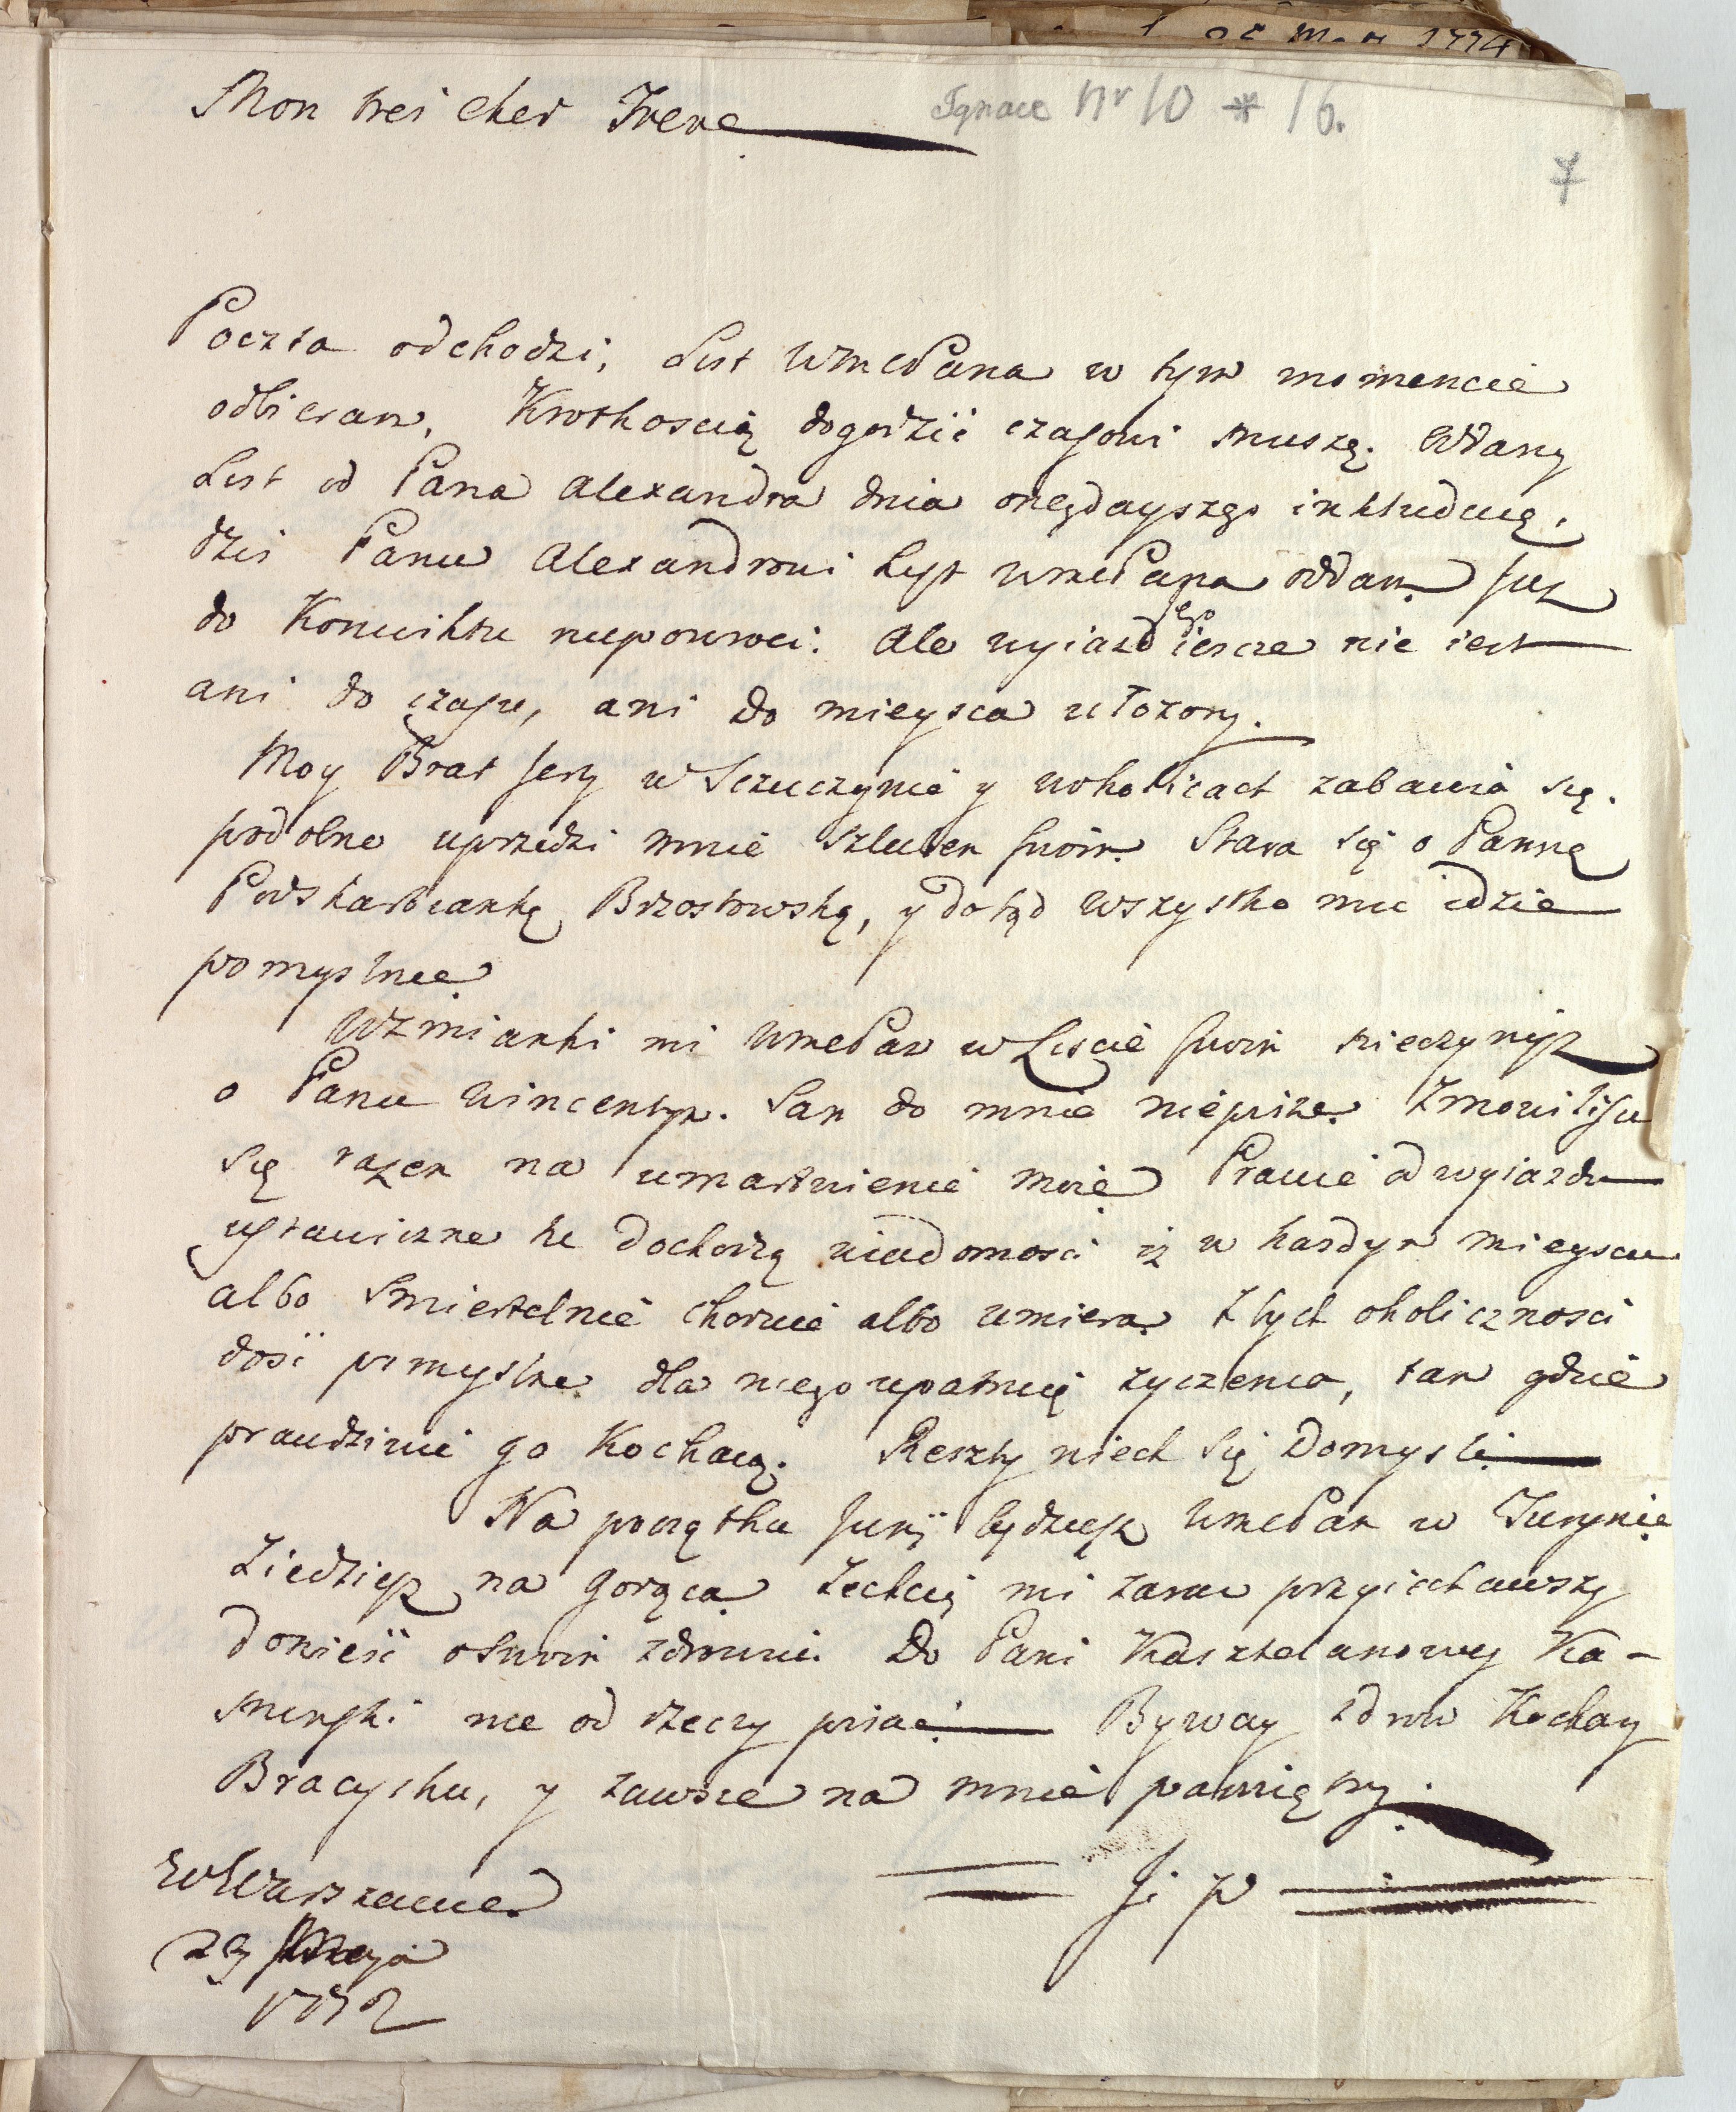 Mon trei cher Frere
Ignace nr 10 * 16.
7
Poczta odchodzi, List WmcPana w tym momencie
odbieram, Krotkoscią dogodzić czasowi muszę. Oddany
List od Pana Alexandra dnia onegdayszego inkluduię.
dzis Panu Alexandrowi Lyst WmcPana oddam. Juz
do Konwiktu niepowroci. Ale wyiazd iego iescze nie iest
ani do czasu, ani do mieysca ułozony.
Moy Brat Jerzy w Sczuczynie y wokolicach zabawia się.
podobno uprzedzi mnie szlubem swoim. Stara się o Pannę
Podskarbiankę Brzostowską, y dotąd wszystko mu idzie
pomyslnie.
Wzmianki mi WmcPan w Liscie swoim nieczynisz
o Panu Wincentym. Sam do mnie niepisze. Zmowiliscie
się razem na umartwienie moie. Prawie od wyiazdu
ustawiczne tu dochodzą wiadomosci iz w kazdym mieyscu
albo smiertelnie choruie albo umiera. Z tych okolicznosci
dosć pomyslne dla niego upatruię zyczenia, tam gdzie
prawdziwie go Kochaią. Reszty niech się Domysli.
Na początku Junij będziesz WmcPan w Turynie
Ziedziesz na gorąca. Zechciey mi zaraz przyiechawszy
doniesć o swoim zdrowiu. Do Pani Kasztelanowey Ka-
minski nie od rzeczy pisac. Byway zdrow Kochany
Bracisku, y zawsze na mnie pamiętay.
J. P.
w Warszawie
29 Maja
1772